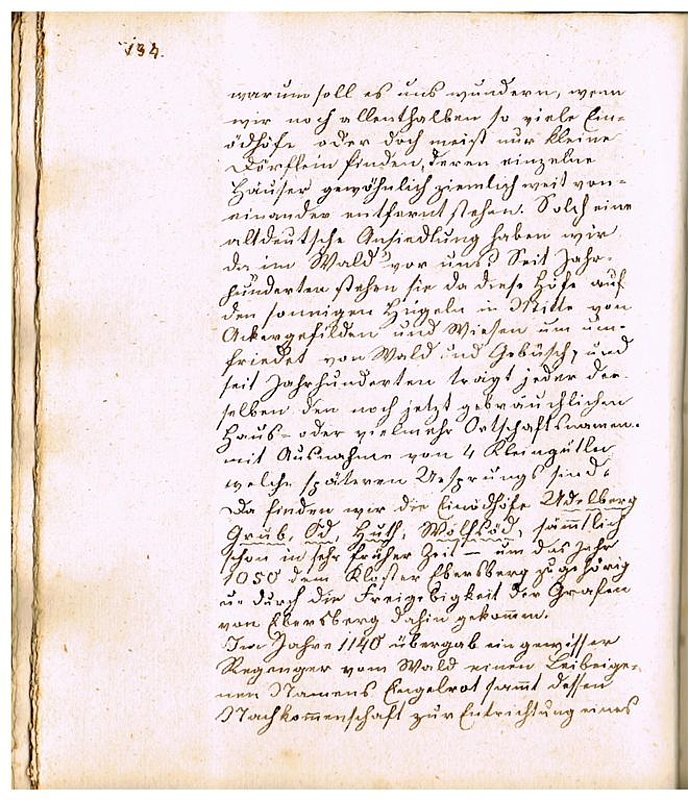 134.
warum soll es uns wundern, wenn
wir noch allenthalben so viele Ein-
ödhöfe oder doch meist nur kleine
Dörflein finden, deren einzelne
Häuser gewöhnlich ziemlich weit von-
einander entfernt stehen. Solch eine
altdeutsche Ansiedlung haben wir
da im "Wald" vor uns! Seit Jahr-
hunderten stehen sie da diese Höfe auf
den sonnigen Hügeln in Mitte von
Ackergefilden und Wiesen um um-
friedet von Wald und Gebüsch, und
seit Jahrhunderten trägt jeder der-
selben den noch jetzt gebräuchlichen
Haus- oder vielmehr Ortschaftsnamen.
mit Ausnahme von 4 Kleingütln
welche späteren Ursprungs sind.
Da finden wir die Einödhöfe Adelberg
Grub, Öd, Huth, Wolfsöd, sämmtlich
schon in sehr früher Zeit – um das Jahr
1050 dem Kloster Ebersberg zugehörig
u. durch die Freigebigkeit der Grafen
von Ebersberg dahin gekom̅en.
Im Jahre 1140 übergab ein gewisser
Regenger vom Wald einen Leibeige-
nen Namens Engelrot sam̅t dessen
Nachkom̅enschaft zur Entrichtung eines